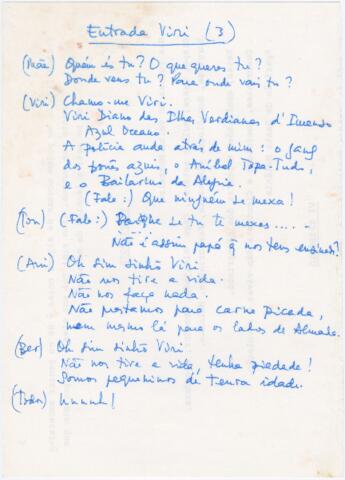 Entrada Viri (3)
(Mãe) Quem és tu? O que queres tu?
Donde vens tu? Para onde vais tu?
(Viri) Chamo-me Viri.
Viri Diano das Ilhas Verdianas d'Imenso
Azul Oceano.
A polícia anda atrás de mim: o gang
dos bonés azuis, o Aníbal Tapa-Tudo,
e o Bailarino da Alegria.
(Fala:) Que ninguém se mexa!
(Ton) (Fala:) Porque se tu te mexes.....
Não é assim papá q nos tens ensinado?
(Ani) Oh sim sinhô Viri
Não nos tire a vida.
Não nos faça nada.
Não prestamos para carne picada,
nem mesmo lá para os lados de Almada.
(Ber) Oh sim sinhô Viri
Não nos tire a vida, tenha piedade!
Somos pequeninos de tenra idade.
hunnh!